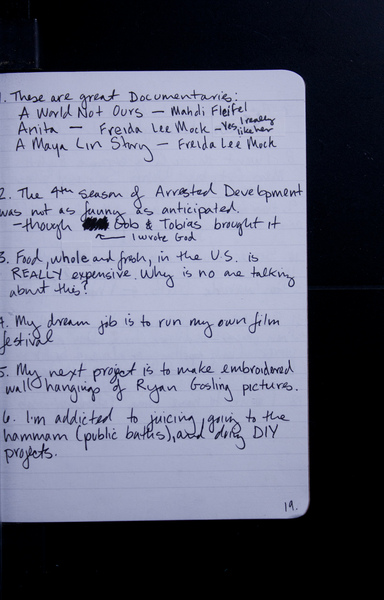 1. These are great Documentaries:
A World Not Ours — Mahdi Fleifel
Anita — Freida Lee Mock — Yes, I really like her
A Maya Lin Story — Freida Lee Mock
2. The 4th season of Arrested Development
was not as funny as anticipated.
— though Gob & Tobias brought it
I wrote God
3. Food, whole and fresh, in the U.S. is
REALLY expensive. Why is no one talking
about this?
4. My dream job is to run my own film
festival
5. My next project is to make embroidered
wall hangings of Ryan Gosling pictures.
6. I'm addicted to juicing, going to the
hammam (public baths), and doing DIY
projects.
19.